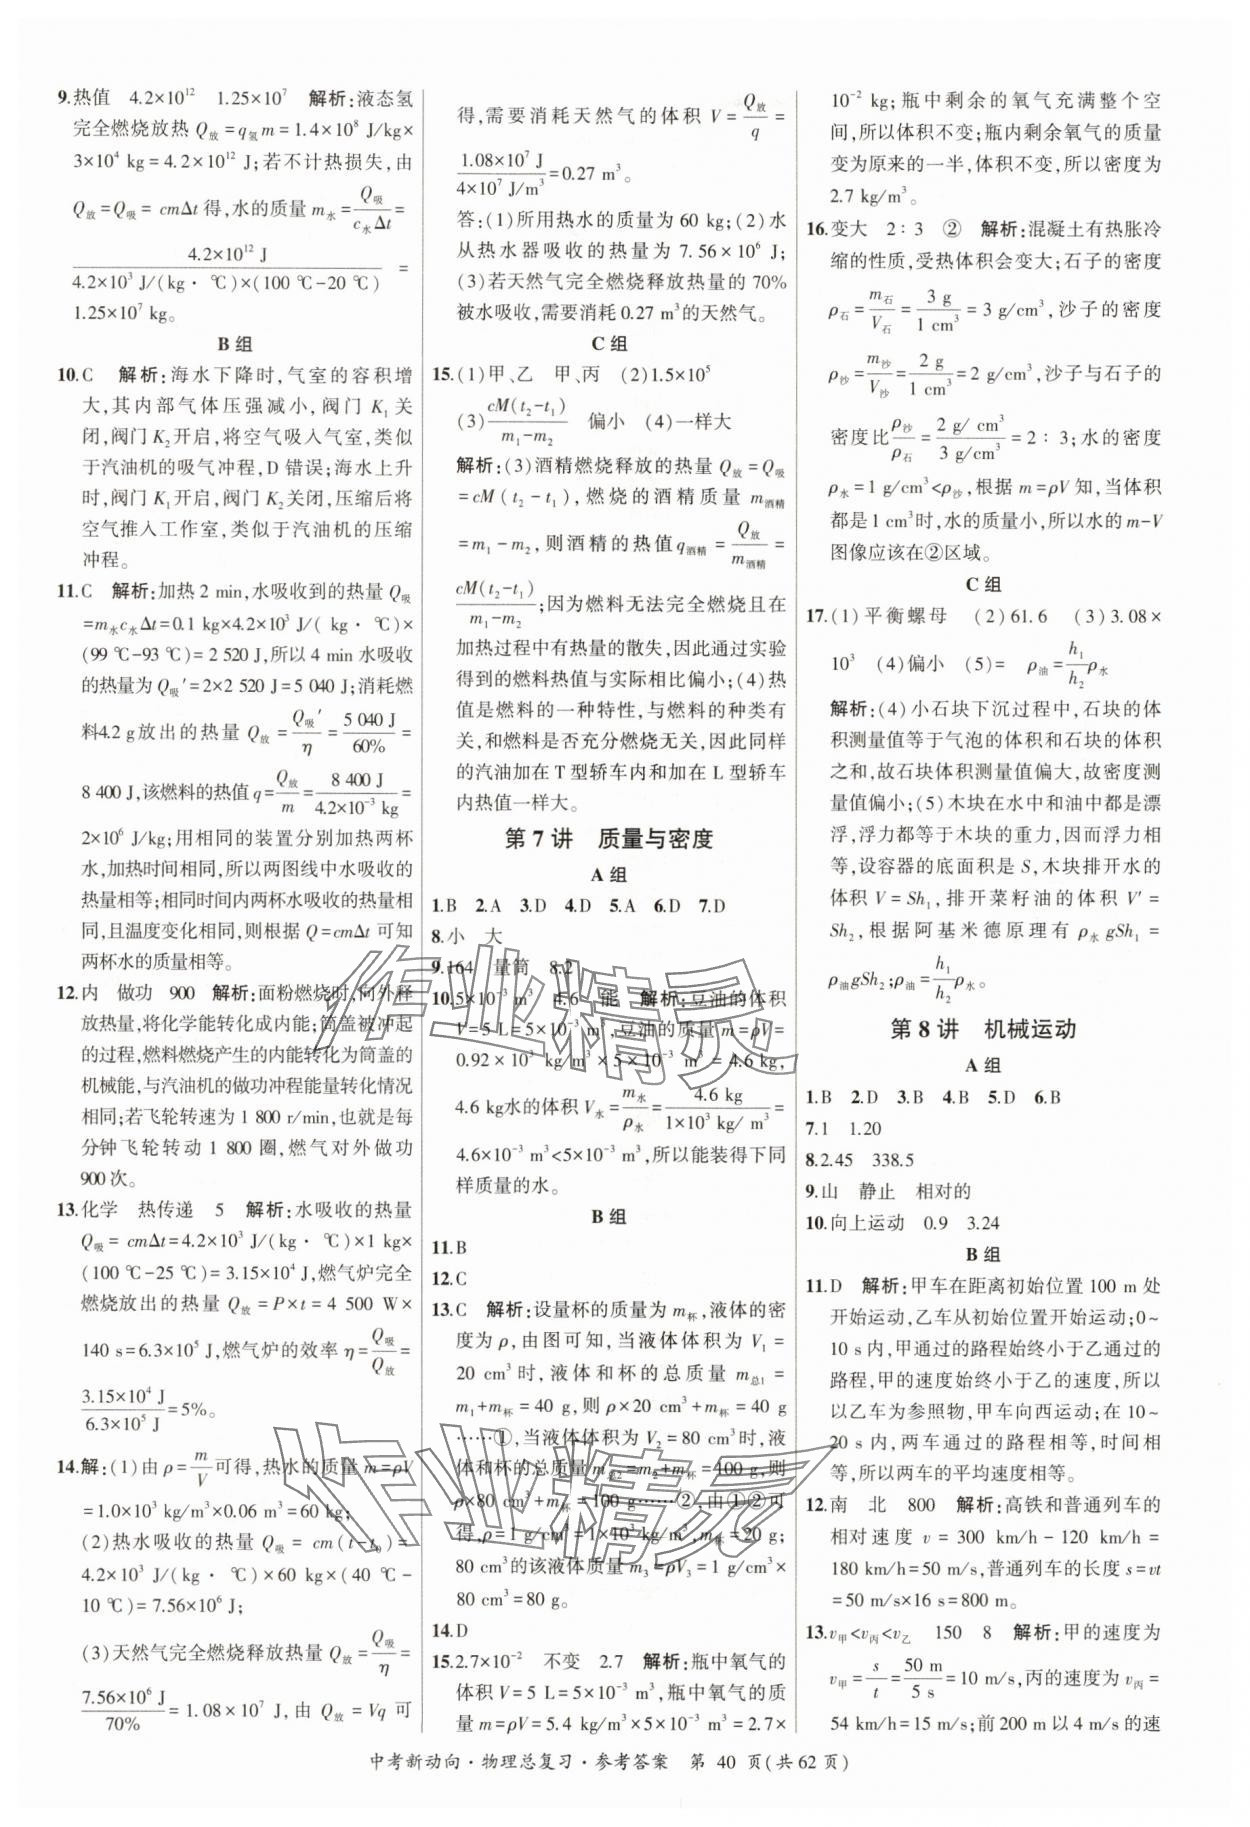 9.热值 4.2×10¹² 1.25×10⁷ 解析:液态氢
完全燃烧放热 Q放=q氢m=1.4×10⁸ J/kg×
3×10⁴ kg=4.2×10¹² J;若不计热损失,由
Q放=Q吸= cmΔt得,水的质量 m水=Q吸/(c水Δt)=
4.2×10¹² J/[4.2×10³ J/(kg· ℃)×(100 ℃-20 ℃)] =
1.25×10⁷ kg。
B 组
10.C 解析:海水下降时,气室的容积增
大,其内部气体压强减小,阀门 K₁关
闭,阀门 K₂开启,将空气吸入气室,类似
于汽油机的吸气冲程,D 错误;海水上升
时,阀门 K₁开启,阀门 K₂关闭,压缩后将
空气推入工作室,类似于汽油机的压缩
冲程。
11.C 解析:加热 2 min,水吸收到的热量 Q吸
=m水c水Δt=0.1 kg×4.2×10³ J/( kg· ℃)×
(99 ℃-93 ℃)=2 520 J,所以 4 min 水吸收
的热量为 Q吸′=2×2 520 J=5 040 J;消耗燃
料4.2 g放出的热量 Q放=Q吸′/η=5 040 J/60%=
8 400 J,该燃料的热值 q=Q放/m=8 400 J/(4.2×10⁻³ kg)=
2×10⁶ J/kg;用相同的装置分别加热两杯
水,加热时间相同,所以两图线中水吸收的
热量相等;相同时间内两杯水吸收的热量相
同,且温度变化相同,则根据 Q=cmΔt 可知
两杯水的质量相等。
12.内 做功 900 解析:面粉燃烧时,向外释
放热量,将化学能转化成内能;筒盖被冲起
的过程,燃料燃烧产生的内能转化为筒盖的
机械能,与汽油机的做功冲程能量转化情况
相同;若飞轮转速为 1 800 r/min,也就是每
分钟飞轮转动 1 800 圈,燃气对外做功
900 次。
13.化学 热传递 5 解析:水吸收的热量
Q吸= cmΔt=4.2×10³ J/(kg· ℃)×1 kg×
(100 ℃-25 ℃)=3.15×10⁴ J,燃气炉完全
燃烧放出的热量 Q放=P×t=4 500 W×
140 s=6.3×10⁵ J,燃气炉的效率 η=Q吸/Q放=
3.15×10⁴ J/6.3×10⁵ J=5%。
14.解:(1)由 ρ=m/V可得,热水的质量 m=ρV
=1.0×10³ kg/m³×0.06 m³=60 kg;
(2)热水吸收的热量 Q吸= cm(t-t₀)=
4.2×10³ J/(kg· ℃)×60 kg×(40 ℃-
10 ℃)=7.56×10⁶ J;
(3)天然气完全燃烧释放热量 Q放=Q吸/η=
7.56×10⁶ J/70%=1.08×10⁷ J,由 Q放=Vq 可
得,需要消耗天然气的体积 V=Q放/q=
1.08×10⁷ J/(4×10⁷ J/m³)=0.27 m³。
答:(1)所用热水的质量为 60 kg;(2)水
从热水器吸收的热量为 7.56×10⁶ J;
(3)若天然气完全燃烧释放热量的 70%
被水吸收,需要消耗 0.27 m³的天然气。
C 组
15.(1)甲、乙 甲、丙 (2)1.5×10⁵
(3)cM(t₂-t₁)/(m₁-m₂) 偏小 (4)一样大
解析:(3)酒精燃烧释放的热量 Q放=Q吸
=cM(t₂-t₁),燃烧的酒精质量 m酒精
=m₁-m₂,则酒精的热值q酒精=Q放/m酒精=
cM(t₂-t₁)/(m₁-m₂);因为燃料无法完全燃烧且在
加热过程中有热量的散失,因此通过实验
得到的燃料热值与实际相比偏小;(4)热
值是燃料的一种特性,与燃料的种类有
关,和燃料是否充分燃烧无关,因此同样
的汽油加在 T 型轿车内和加在 L 型轿车
内热值一样大。
第 7 讲 质量与密度
A 组
1.B 2.A 3.D 4.D 5.A 6.D 7.D
8.小 大
9.164 量筒 8.2
10.5×10⁻³ m³ 4.6 能 解析:豆油的体积
V=5 L=5×10⁻³ m³,豆油的质量 m=ρV=
0.92×10³ kg/m³×5×10⁻³ m³=4.6 kg,
4.6 kg水的体积 V水=m水/ρ水=4.6 kg/(1×10³ kg/ m³)=
4.6×10⁻³ m³<5×10⁻³ m³,所以能装得下同
样质量的水。
B 组
11.B
12.C
13.C 解析:设量杯的质量为 m杯,液体的密
度为 ρ,由图可知,当液体体积为 V₁=
20 cm³时,液体和杯的总质量 m总1=
m₁+m杯=40 g,则 ρ×20 cm³+m杯=40 g
……①,当液体体积为 V₂=80 cm³时,液
体和杯的总质量 m总2=m₂+m杯=100 g,则
ρ×80 cm³+m杯=100 g……②,由①②可
得,ρ=1 g/cm³=1×10³ kg/m³,m杯=20 g;
80 cm³的该液体质量 m₃=ρV₃=1 g/cm³×
80 cm³=80 g。
14.D
15.2.7×10⁻² 不变 2.7 解析:瓶中氧气的
体积 V=5 L=5×10⁻³ m³,瓶中氧气的质
量 m=ρV=5.4 kg/m³×5×10⁻³ m³=2.7×
10⁻² kg;瓶中剩余的氧气充满整个空
间,所以体积不变;瓶内剩余氧气的质量
变为原来的一半,体积不变,所以密度为
2.7 kg/m³。
16.变大 2∶3 ② 解析:混凝土有热胀冷
缩的性质,受热体积会变大;石子的密度
ρ石=m石/V石=3 g/1 cm³=3 g/cm³,沙子的密度
ρ沙=m沙/V沙=2 g/1 cm³=2 g/cm³,沙子与石子的
密度比ρ沙/ρ石=(2 g/ cm³)/(3 g/cm³)=2∶3;水的密度
ρ水=1 g/cm³<ρ沙,根据 m=ρV 知,当体积
都是 1 cm³时,水的质量小,所以水的 m-V
图像应该在②区域。
C 组
17.(1)平衡螺母 (2)61.6 (3)3.08×
10³ (4)偏小 (5)= ρ油=h₁/h₂ρ水
解析:(4)小石块下沉过程中,石块的体
积测量值等于气泡的体积和石块的体积
之和,故石块体积测量值偏大,故密度测
量值偏小;(5)木块在水中和油中都是漂
浮,浮力都等于木块的重力,因而浮力相
等,设容器的底面积是 S,木块排开水的
体积 V=Sh₁,排开菜籽油的体积 V′=
Sh₂,根据阿基米德原理有 ρ水gSh₁=
ρ油gSh₂;ρ油=h₁/h₂ρ水。
第 8 讲 机械运动
A 组
1.B 2.D 3.B 4.B 5.D 6.B
7.1 1.20
8.2.45 338.5
9.山 静止 相对的
10.向上运动 0.9 3.24
B 组
11.D 解析:甲车在距离初始位置 100 m 处
开始运动,乙车从初始位置开始运动;0~
10 s 内,甲通过的路程始终小于乙通过的
路程,甲的速度始终小于乙的速度,所以
以乙车为参照物,甲车向西运动;在 10~
20 s 内,两车通过的路程相等,时间相
等,所以两车的平均速度相等。
12.南 北 800 解析:高铁和普通列车的
相对速度 v=300 km/h-120 km/h=
180 km/h=50 m/s,普通列车的长度 s=vt
=50 m/s×16 s=800 m。
13.v甲<v丙<v乙 150 8 解析:甲的速度为
v甲=s/t=50 m/5 s=10 m/s,丙的速度为 v丙=
54 km/h=15 m/s;前 200 m 以 4 m/s 的速
中考新动向·物理总复习·参考答案 第 40 页(共 62 页)
作业精灵
作业精灵